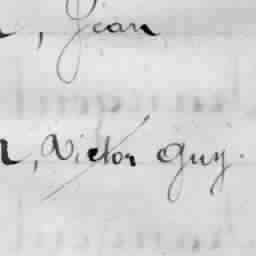 , Jean
, Victor Guy.